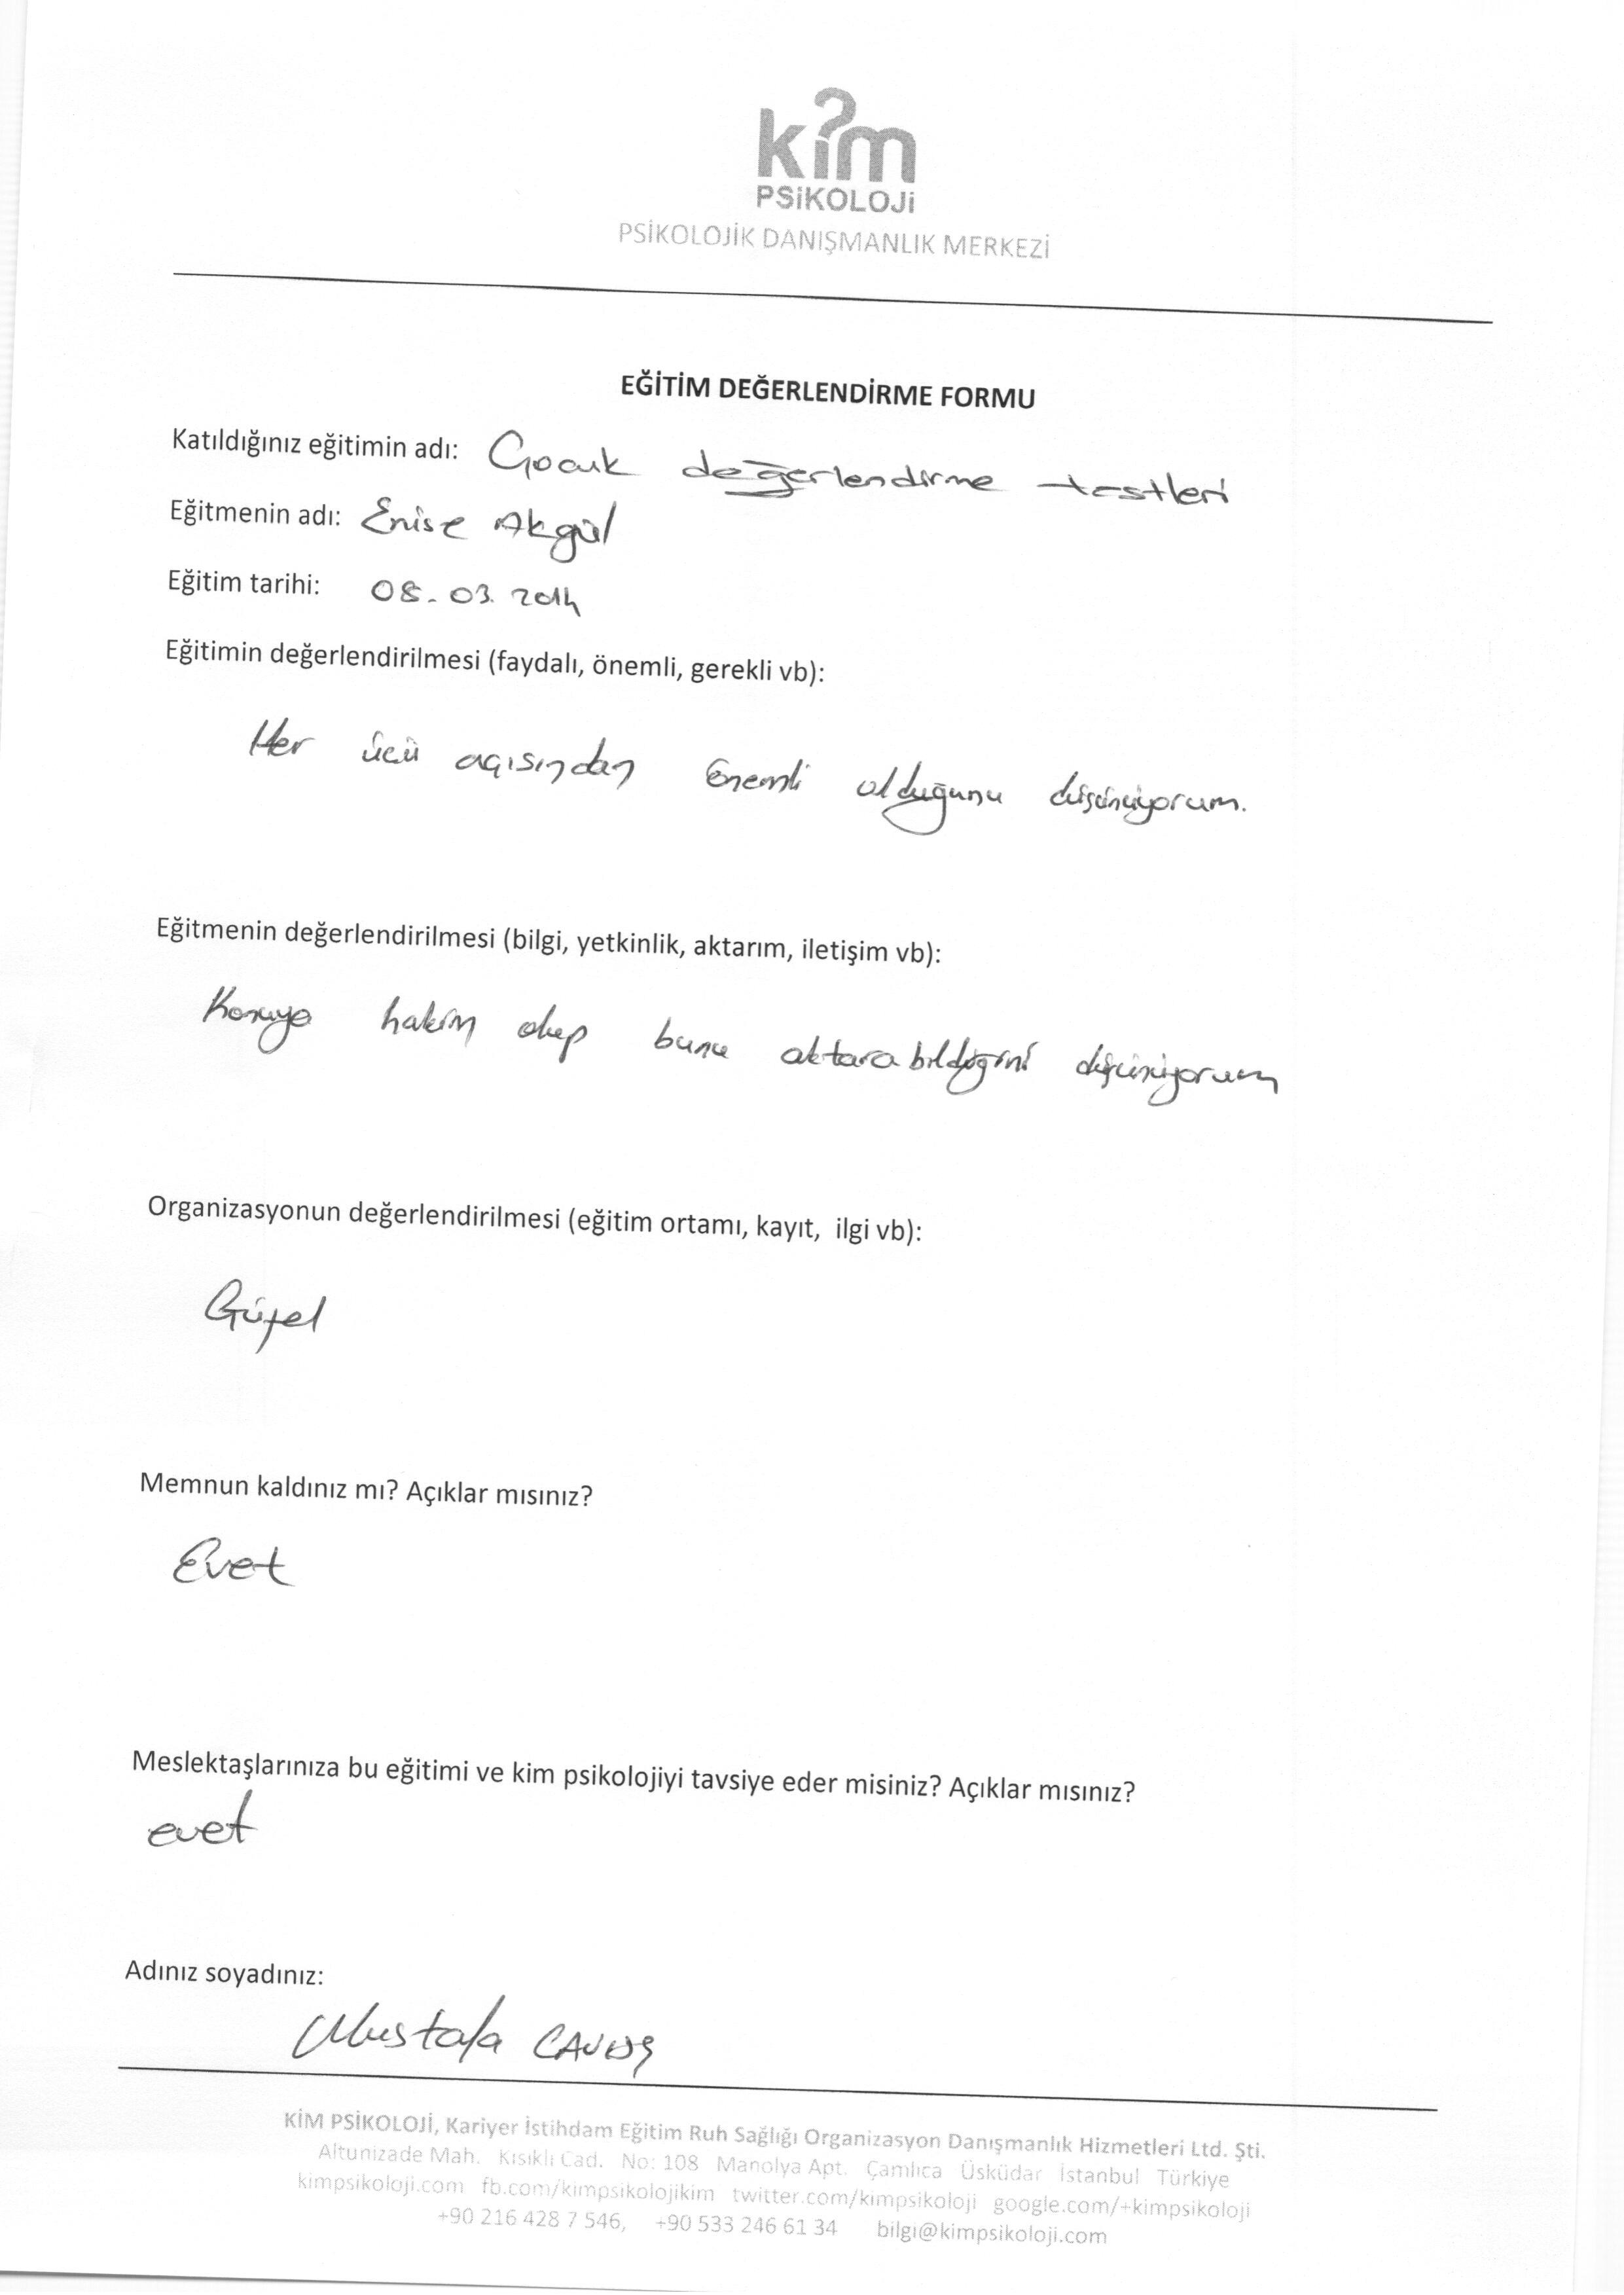 kim
PSiKOLOJi
PSİKOLOJİK DANIŞMANLIK MERKEZİ
EĞİTİM DEĞERLENDİRME FORMU
Katıldığınız eğitimin adı: Çocuk değerlendirme testleri
Eğitmenin adı: Enise Akgül
Eğitim tarihi: 08.03.2014
Eğitimin değerlendirilmesi (faydalı, önemli, gerekli vb):
Her üçü açısından önemli olduğunu düşünüyorum.
Eğitmenin değerlendirilmesi (bilgi, yetkinlik, aktarım, iletişim vb):
Konuya hakim olup bunu aktarabildiğini düşünüyorum
Organizasyonun değerlendirilmesi (eğitim ortamı, kayıt, ilgi vb):
Güzel
Memnun kaldınız mı? Açıklar mısınız?
Evet
Meslektaşlarınıza bu eğitimi ve kim psikolojiyi tavsiye eder misiniz? Açıklar mısınız?
evet
Adınız soyadınız:
Mustafa
KİM PSİKOLOJİ, Kariyer İstihdam Eğitim Ruh Sağlığı Organizasyon Danışmanlık Hizmetleri Ltd. Şti.
Altunizade Mah. Kısıklı Cad. No: 108 Manolya Apt. Çamlıca Üsküdar İstanbul Türkiye
kimpsikoloji.com fb.com/kimpsikolojikim twitter.com/kimpsikoloji google.com/+kimpsikoloji
+90 216 428 7 546, +90 533 246 61 34 bilgi@kimpsikoloji.com